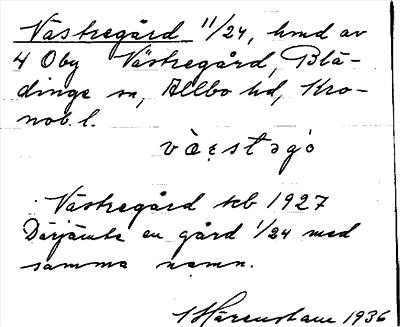 Västregård 11/24, hmd av
4 Oby Västregård, Blä-
dinge sn, Allbo hd, Kro-
nob. l.
væ̀stəgó
Västregård kb 1927
Därjämte en gård 1/24 med
samma namn.
1936